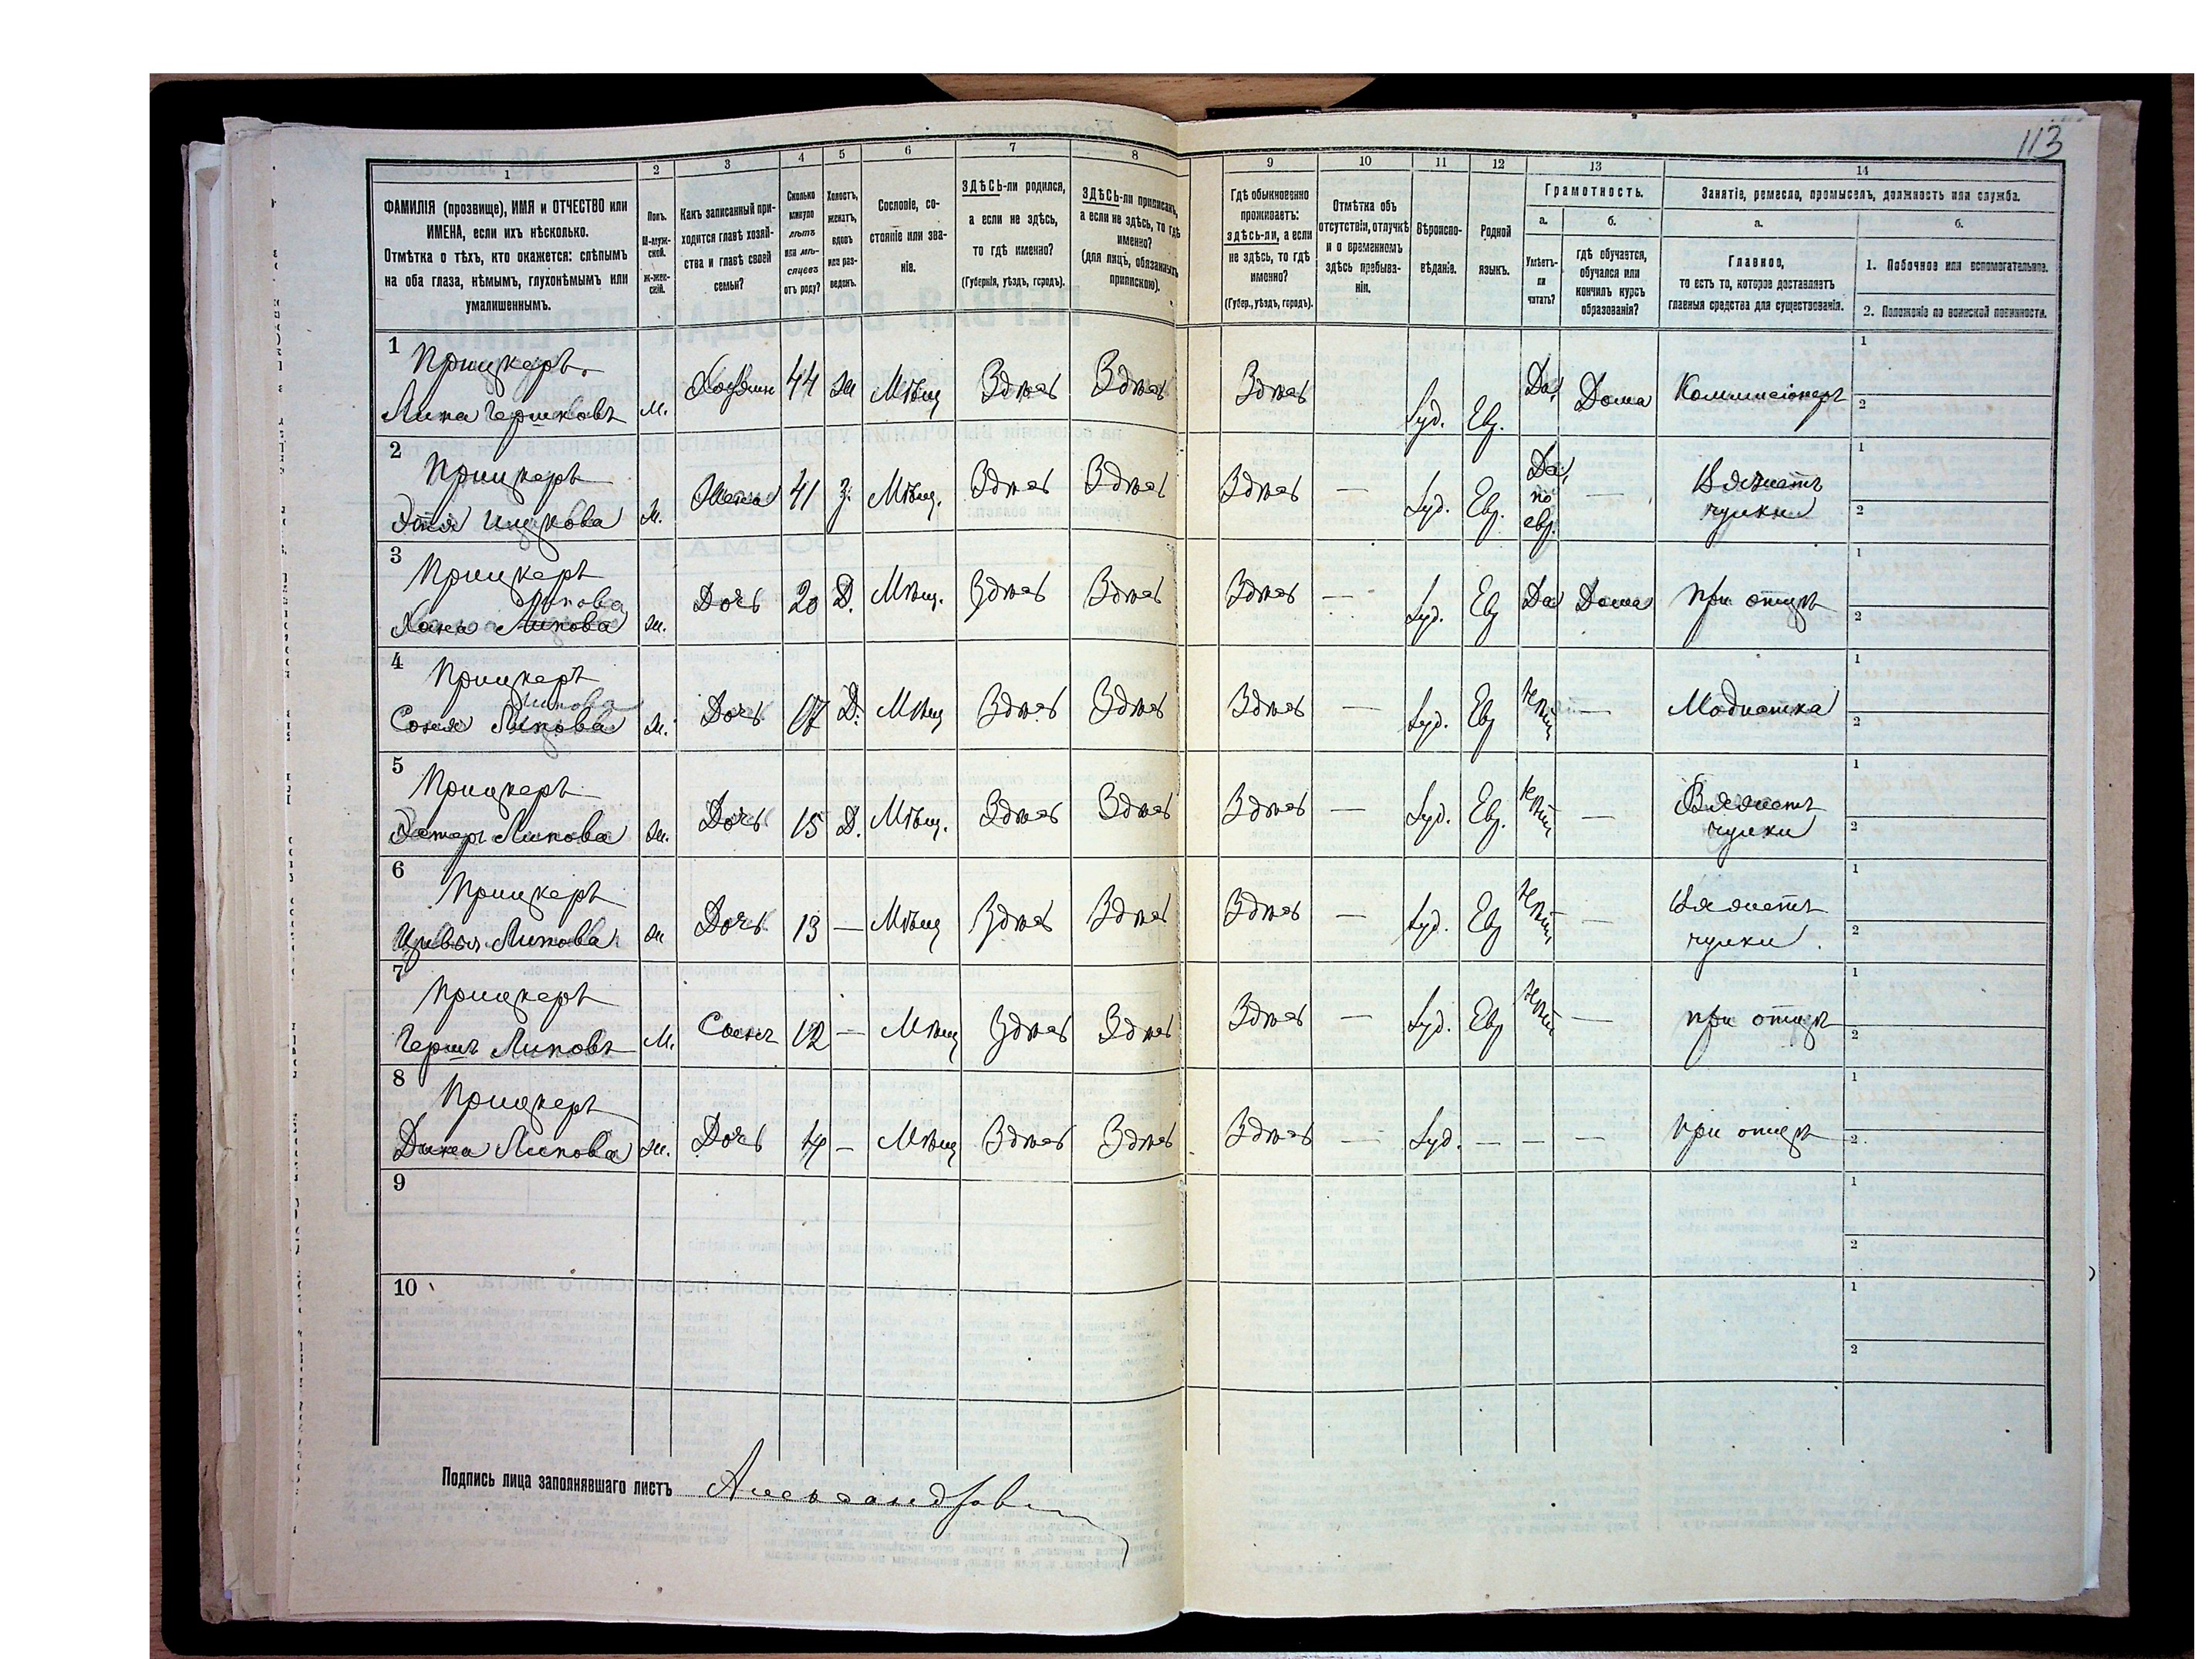 113
1 2 3 4 5 6 7 8 9 10 11 12 13 14
ФАМИЛІЯ (прозвище), ИМЯ и ОТЧЕСТВО или
ИМЕНА, если ихъ нѣсколько.
Отмѣтка о тѣхъ, кто окажется: слѣпымъ
на оба глаза, нѣмымъ, глухонѣмымъ или
умалишеннымъ.
Полъ.
М-муж-
ской.
ж-жен-
скій.
Какъ записанный при-
ходится главѣ хозяй-
ства и главѣ своей
семьи?
Сколько
минуло
лѣтъ
или мѣ-
сяцевъ
отъ роду?
Холостъ,
женатъ,
вдовъ
или раз-
веденъ.
Сословіе, со-
стояніе или зва-
ніе.
ЗДѢСЬ-ли родился,
а если не здѣсь,
то гдѣ именно?
(Губернія, уѣздъ, городъ).
ЗДѢСЬ-ли приписанъ,
а если не здѣсь, то гдѣ
именно?
(для лицъ, обязанныхъ
припискою).
Гдѣ обыкновенно
проживаетъ:
здѣсь-ли, а если
не здѣсь, то гдѣ
именно?
(Губер., уѣздъ, городъ).
Отмѣтка объ
отсутствіи, отлучкѣ
и о временномъ
здѣсь пребыва-
ніи.
Вѣроиспо-
вѣданіе.
Родной
языкъ.
Грамотность.
а. б.
Умѣетъ-
ли
читать?
гдѣ обучается,
обучался или
кончилъ курсъ
образованія?
Занятіе, ремесло, промыселъ, должность или служба.
а. б.
Главное,
то есть то, которое доставляетъ
главныя средства для существованія.
1. Побочное или вспомогательное.
2. Положеніе по воинской повинности.
1 Прицкеръ
Липа Гершковъ м. Хозяинъ 44 ж Мѣщ Здѣсь Здѣсь Здѣсь Іуд. Евр. Да, Дома Коммисіонеръ 1 2
2 Прицкеръ
Этя Ицкова ж. Жена 41 з. Мѣщ. Здѣсь Здѣсь Здѣсь — Іуд. Евр. Да, по евр. — Вяжетъ чулки 1 2
3 Прицкеръ
Липова
Хана Липова ж. Дочь 20 Д. Мѣщ. Здѣсь Здѣсь Здѣсь — Іуд. Евр Да Дома при отцѣ 1 2
4 Прицкеръ
Липова
Соня Липова ж. Дочь 17 Д. Мѣщ Здѣсь Здѣсь Здѣсь — Іуд. Евр Нѣтъ — Модистка 1 2
5 Прицкеръ
Эстеръ Липова ж. Дочь 15 Д. Мѣщ. Здѣсь Здѣсь Здѣсь — Іуд. Евр. Нѣтъ — Вяжетъ чулки 1 2
6 Прицкеръ
Цивья Липова ж Дочь 13 — Мѣщ Здѣсь Здѣсь Здѣсь — Іуд. Евр Нѣтъ — Вяжетъ чулки. 1 2
7 Прицкеръ
Гершъ Липовъ м. Сынъ 12 — Мѣщ Здѣсь Здѣсь Здѣсь — Іуд. Евр Нѣтъ — при отцѣ 1 2
8 Прицкеръ
Липова ж. Дочь 4 — Мѣщ Здѣсь Здѣсь Здѣсь — Іуд. — — — при отцѣ 1 2
9 1 2
10 1 2
Подпись лица заполнявшаго листъ